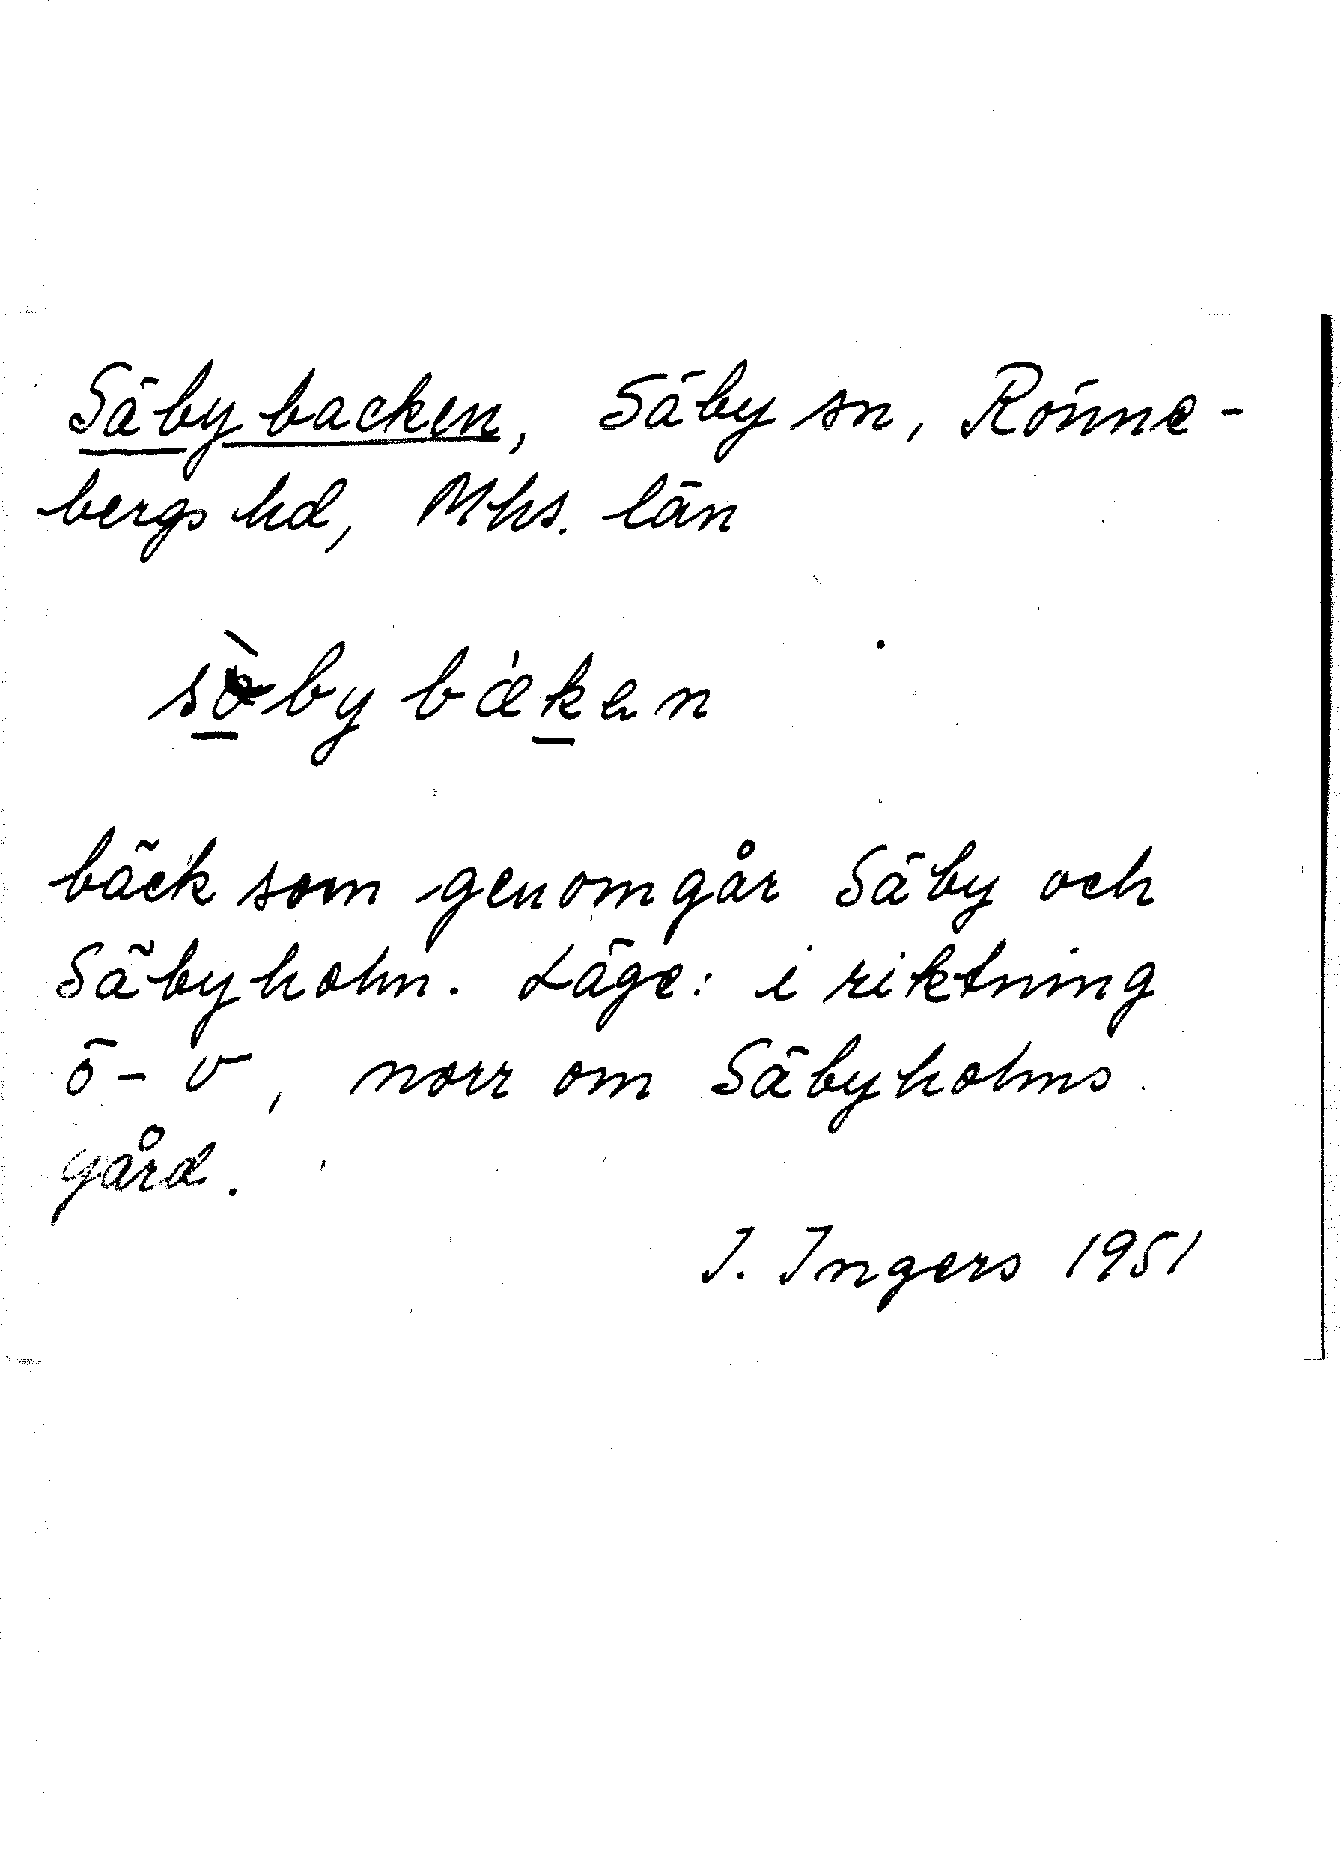 Säbybacken, Säby sn, Rönne-
bergs hd, Mhs. län
sö̀bybǽken
bäck som genomgår Säby och
Säbyholm. Läge: i riktning
ö - v, norr om Säbyholms
gård.
I. Ingers 1951